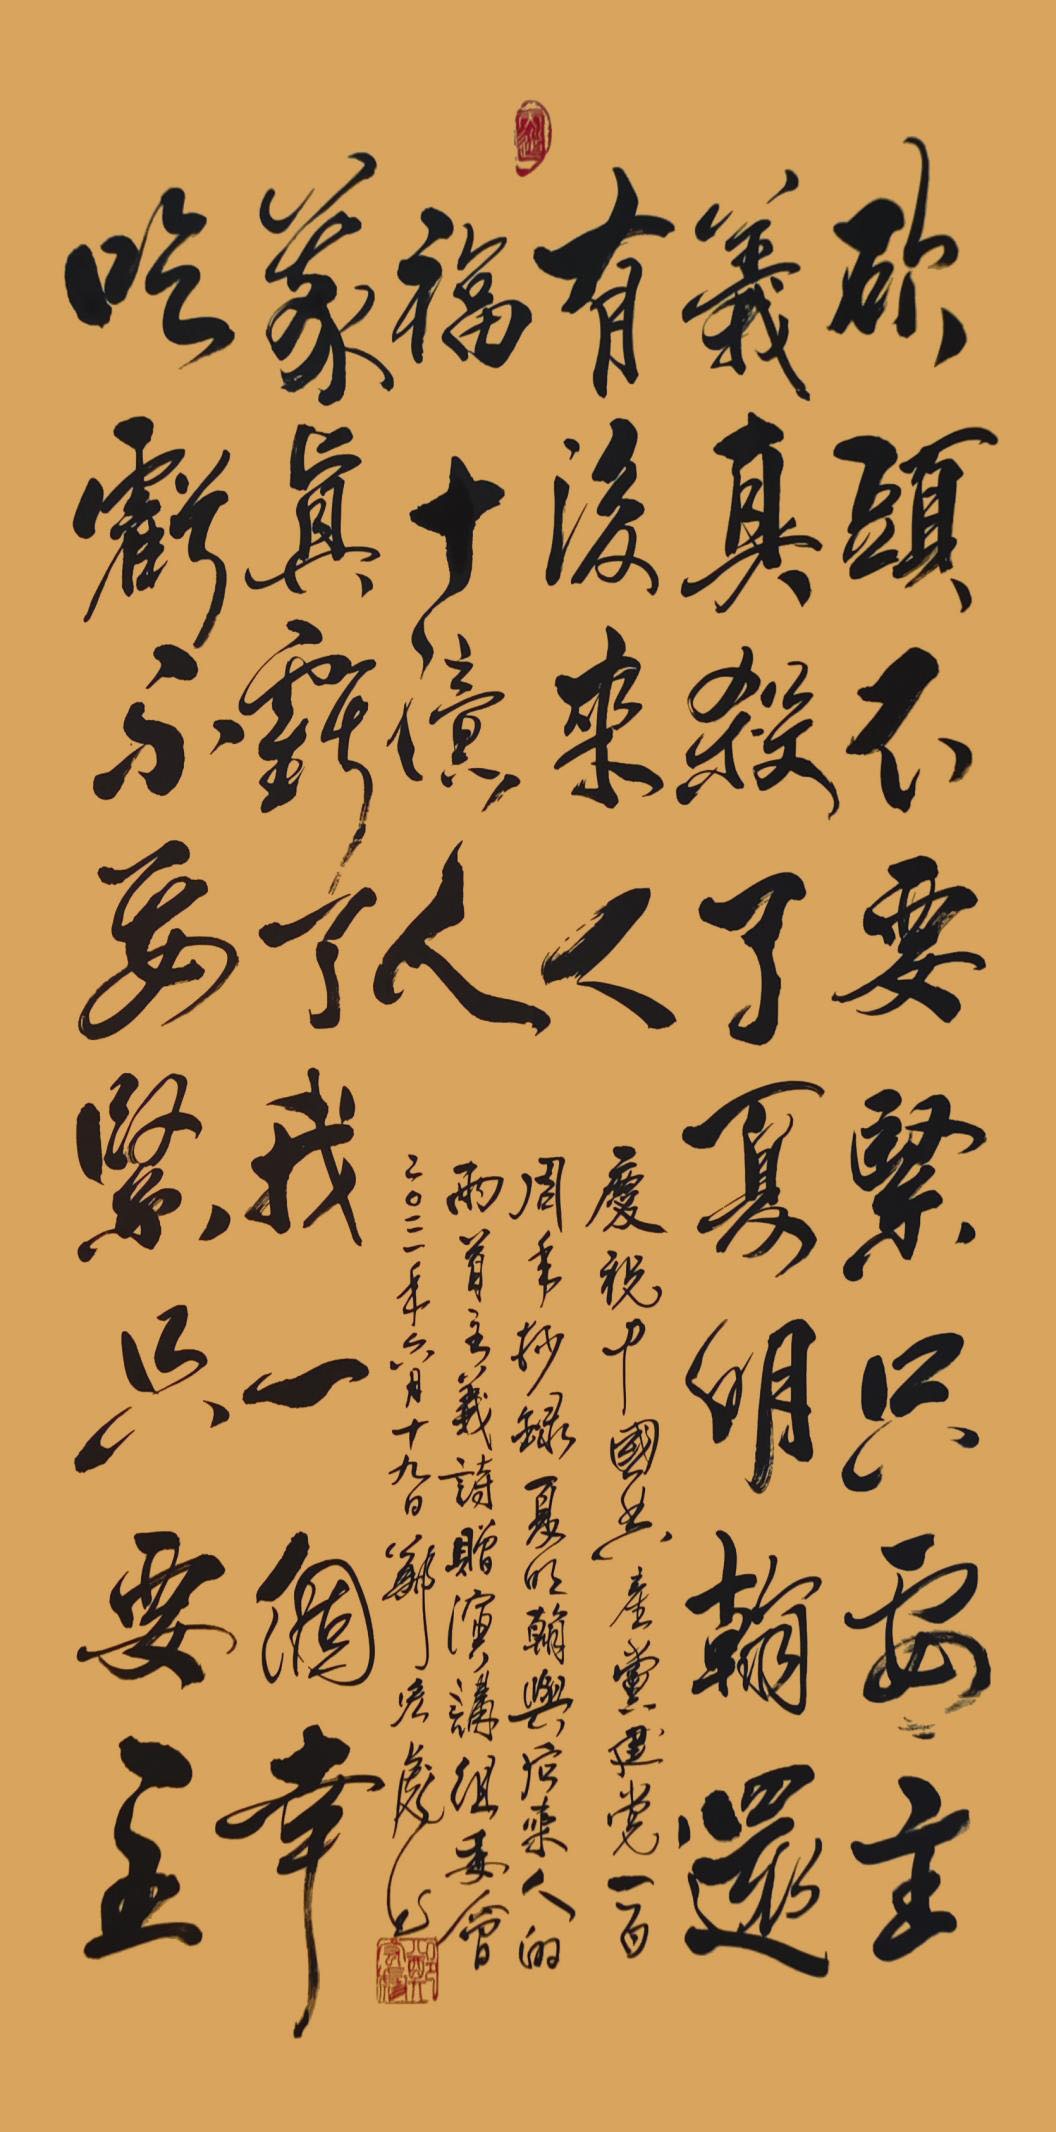 砍頭不要緊只要主
義真殺了夏明翰還
有後來人
吃虧不要緊只要主
義真虧了我一個幸
福十億人
慶祝中國共產黨建党一百
周年抄録夏明翰與后來人的
兩首主義詩贈演講組委會
二〇二一年六月十九日鄭宏